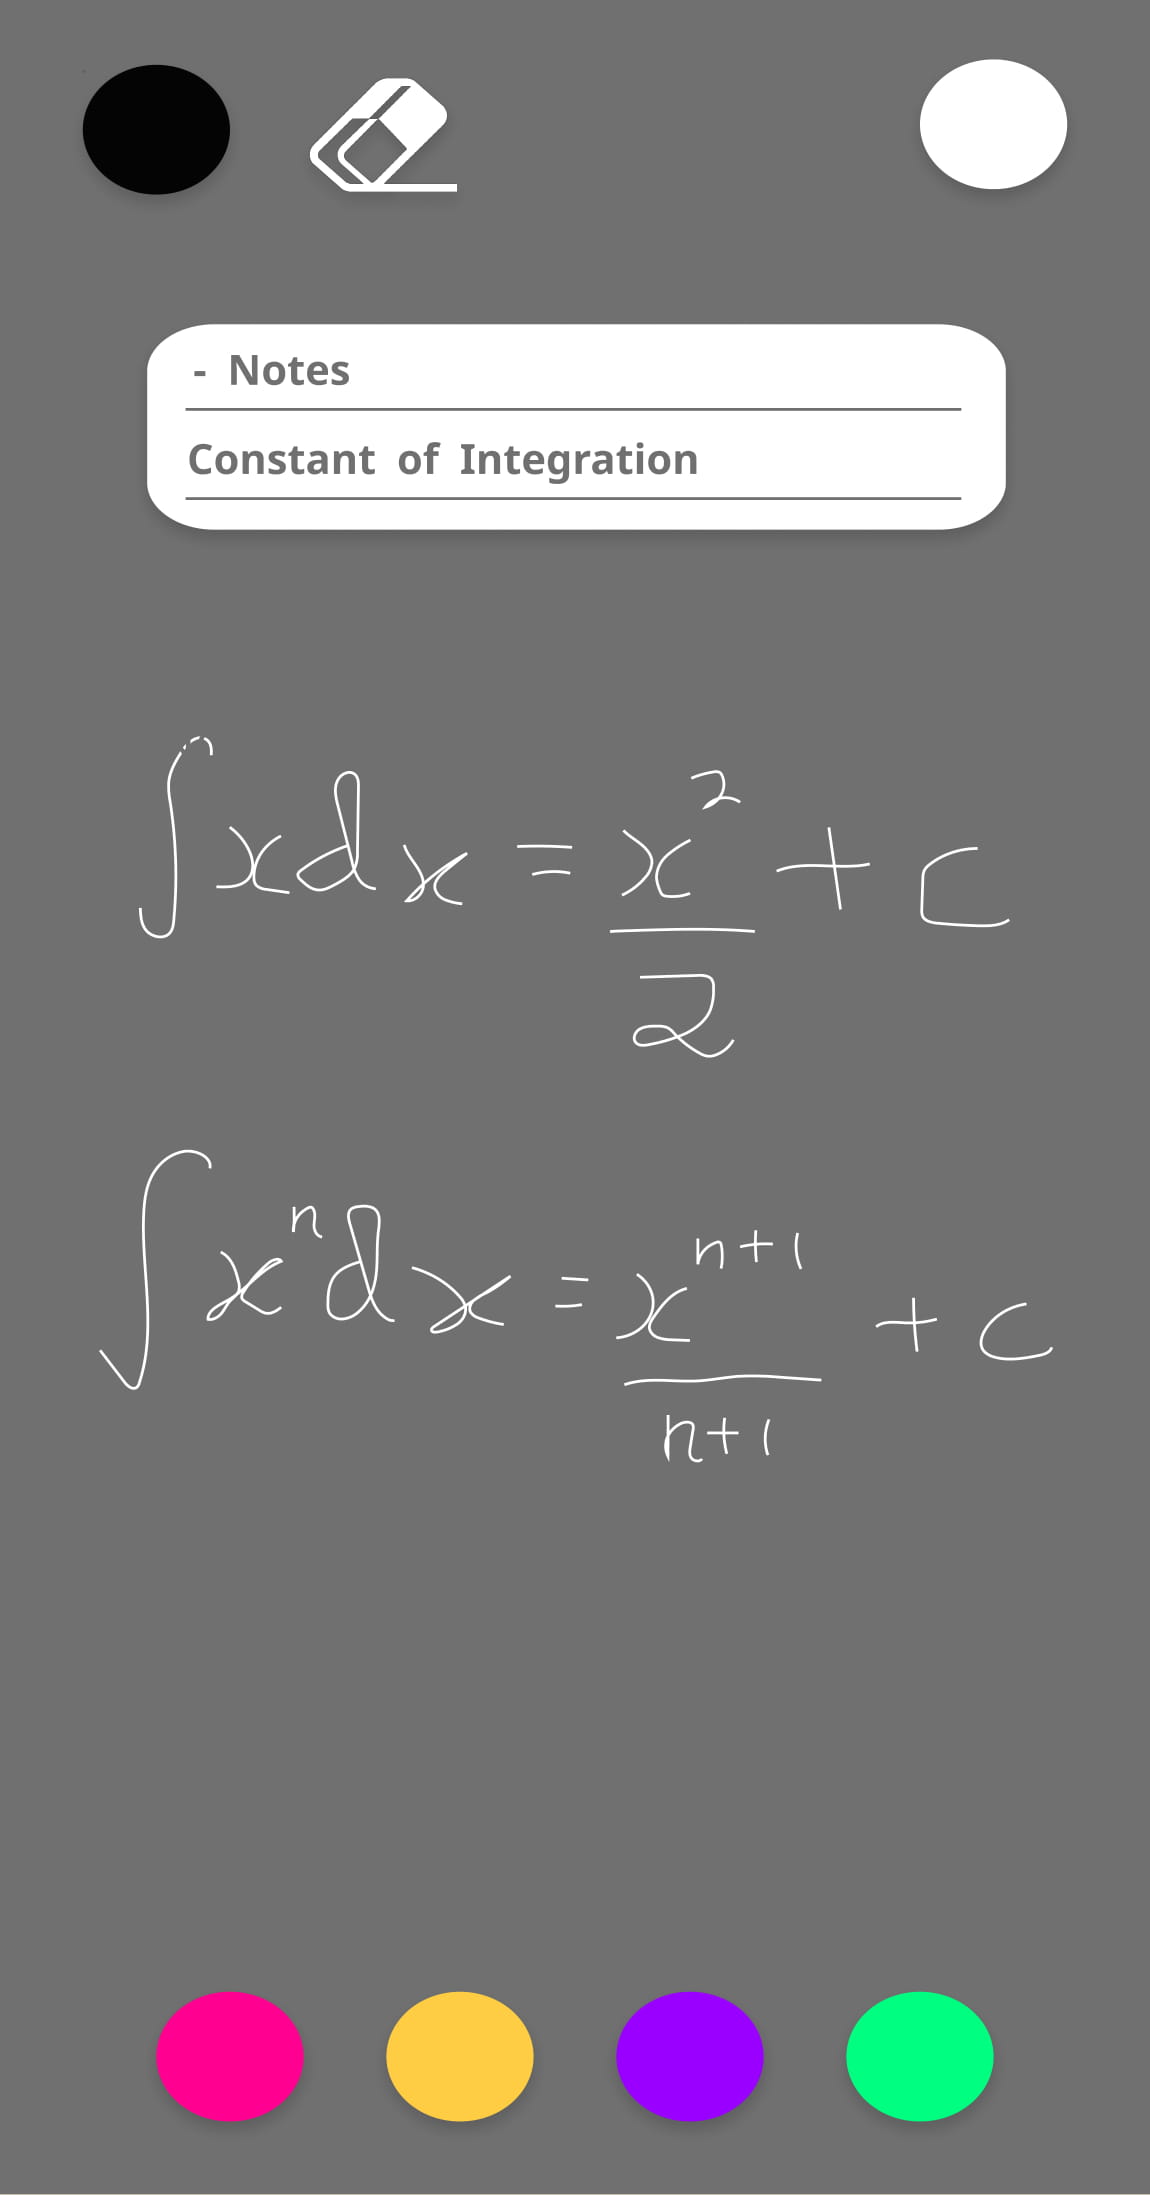 - Notes
Constant of Integration
∫xdx = x²/2 + c
∫xⁿdx = xⁿ⁺¹/n+1 + c